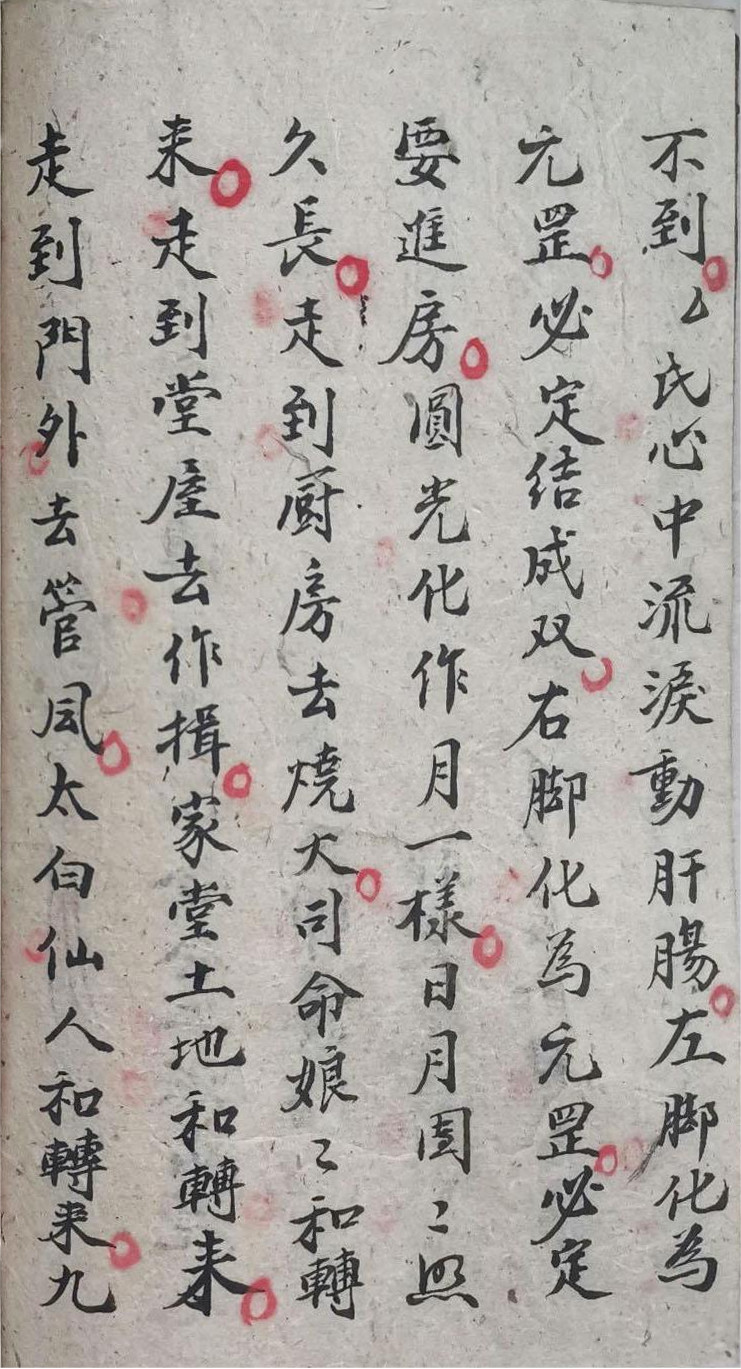 不到厶氏心中流淚動肝腸左脚化為
元罡必定结成双右脚化為元罡必定
要進房圓光化作月一樣日月团〻照
久長走到厨房去燒火司命娘〻和轉
来走到堂屋去作揖家堂土地和轉来
走到門外去管風太白仙人和轉来九